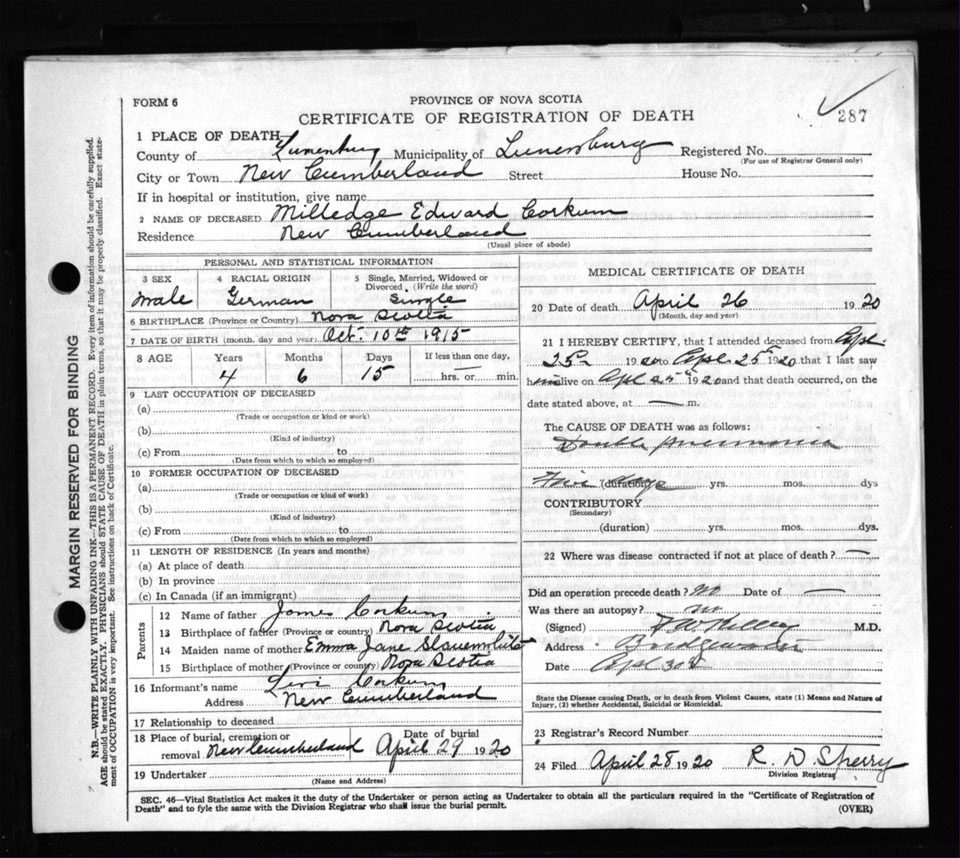 FORM 6
PROVINCE OF NOVA SCOTIA
CERTIFICATE OF REGISTRATION OF DEATH
287
1 PLACE OF DEATH—
County of Lunenburg Municipality of Lunenburg Registered No.
(For use of Registrar General only)
City or Town New Cumberland Street House No.
If in hospital or institution, give name
2 NAME OF DECEASED Milledge Edward Corkum
Residence New Cumberland
(Usual place of abode)
PERSONAL AND STATISTICAL INFORMATION
3 SEX 4 RACIAL ORIGIN 5 Single, Married, Widowed or Divorced (Write the word)
male German Single
6 BIRTHPLACE (Province or Country) Nova Scotia
7 DATE OF BIRTH (month, day and year) Oct. 10th 1915
8 AGE Years Months Days If less than one day,
4 6 15 — hrs. or min.
9 LAST OCCUPATION OF DECEASED
(a)
(Trade or occupation or kind of work)
(b)
(Kind of industry)
(c) From to
(Date from which to which so employed)
10 FORMER OCCUPATION OF DECEASED
(a)
(Trade or occupation or kind of work)
(b)
(Kind of industry)
(c) From to
(Date from which to which so employed)
11 LENGTH OF RESIDENCE (In years and months)
(a) At place of death
(b) In province
(c) In Canada (if an immigrant)
Parents
12 Name of father James Corkum
13 Birthplace of father (Province or country) Nova Scotia
14 Maiden name of mother Emma Jane
15 Birthplace of mother (Province or country) Nova Scotia
16 Informant's name Levi Corkum
Address New Cumberland
17 Relationship to deceased
18 Place of burial, cremation or removal New Cumberland Date of burial April 29 1920
19 Undertaker
(Name and Address)
MEDICAL CERTIFICATE OF DEATH
20 Date of death April 26 1920
(Month, day and year)
21 I HEREBY CERTIFY, that I attended deceased from Apl.
25 1920 to Apl. 25th 1920 that I last saw
him alive on Apl 25th 1920 and that death occurred, on the
date stated above, at — m.
The CAUSE OF DEATH was as follows:
Double pneumonia
Five days (duration) yrs. mos. dys
CONTRIBUTORY
(Secondary)
(duration) yrs. mos. dys.
22 Where was disease contracted if not at place of death? —
Did an operation precede death? no Date of —
Was there an autopsy? no
(Signed) M.D.
Address Bridgewater
Date Apl 30th
State the Disease causing Death, or in death from Violent Causes, state (1) Means and Nature of
Injury, (2) whether Accidental, Suicidal or Homicidal.
23 Registrar's Record Number
24 Filed April 28 1920 R. D. Sherry
Division Registrar
SEC. 46—Vital Statistics Act makes it the duty of the Undertaker or person acting as Undertaker to obtain all the particulars required in the "Certificate of Registration of
Death" and to fyle the same with the Division Registrar who shall issue the burial permit.
(OVER)
MARGIN RESERVED FOR BINDING
N.B.—WRITE PLAINLY WITH UNFADING INK—THIS IS A PERMANENT RECORD. Every item of information should be carefully supplied.
AGE should be stated EXACTLY. PHYSICIANS should STATE CAUSE OF DEATH in plain terms, so that it may be properly classified. Exact state-
ment of OCCUPATION is very important. See instructions on back of Certificate.